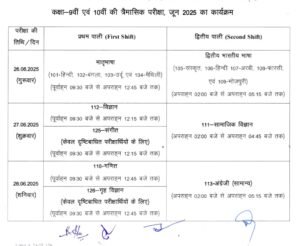 कक्षा-9वीं एवं 10वीं की त्रैमासिक परीक्षा, जून 2025 का कार्यक्रम
परीक्षा की
तिथि / दिन
प्रथम पाली (First Shift)
द्वितीय पाली (Second Shift)
26.06.2025
(गुरूवार)
मातृभाषा
(101-हिन्दी, 102-बंगला, 103-उर्दू एवं 104-मैथिली)
(पूर्वाहन 09:30 बजे से अपराहन 12:45 बजे तक)
द्वितीय भारतीय भाषा
(105-संस्कृत, 106-हिन्दी, 107-अरबी, 108-फारसी,
एवं 109-भोजपुरी)
(अपराहन 02:00 बजे से अपराहन 05:15 बजे तक)
27.06.2025
(शुक्रवार)
112-विज्ञान
(पूर्वाहन 09:30 बजे से अपराहन 12:15 बजे तक)
125-संगीत
(केवल दृष्टिबाधित परीक्षार्थियों के लिए)
(पूर्वाहन 09:30 बजे से अपराहन 12:15 बजे तक)
111-सामाजिक विज्ञान
(अपराहन 02:00 बजे से अपराहन 04:45 बजे तक)
28.06.2025
(शनिवार)
110-गणित
(पूर्वाहन 09:30 बजे से अपराहन 12:45 बजे तक)
126-गृह विज्ञान
(केवल दृष्टिबाधित परीक्षार्थियों के लिए)
(पूर्वाहन 09:30 बजे से अपराहन 12:45 बजे तक)
113-अंग्रेजी (सामान्य)
(अपराहन 02:00 बजे से अपराहन 05:15 बजे तक)